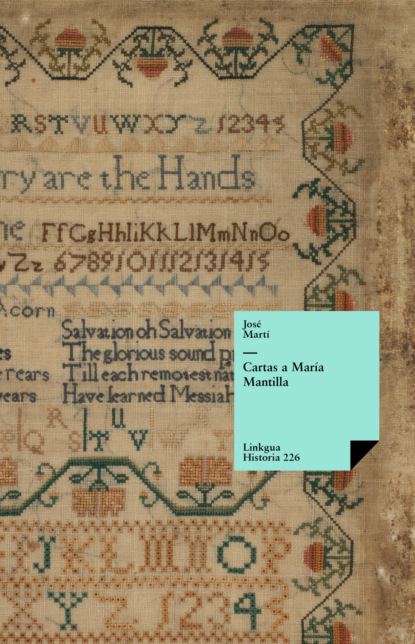 RSTVUWXYZ 12345
ry are the Hands
ne FfGgHhIiKkLlMmNnOo
Zz 6789101112131415
Acorn
Salvation oh Salvation
The glorious sound
rears Till each remotest nat
years Have learned Messiah
José
Martí
Cartas a María
Mantilla
Linkgua
Historia 226
Q R S t U V
J K L M N O P
X Y Z 1 2 3 4